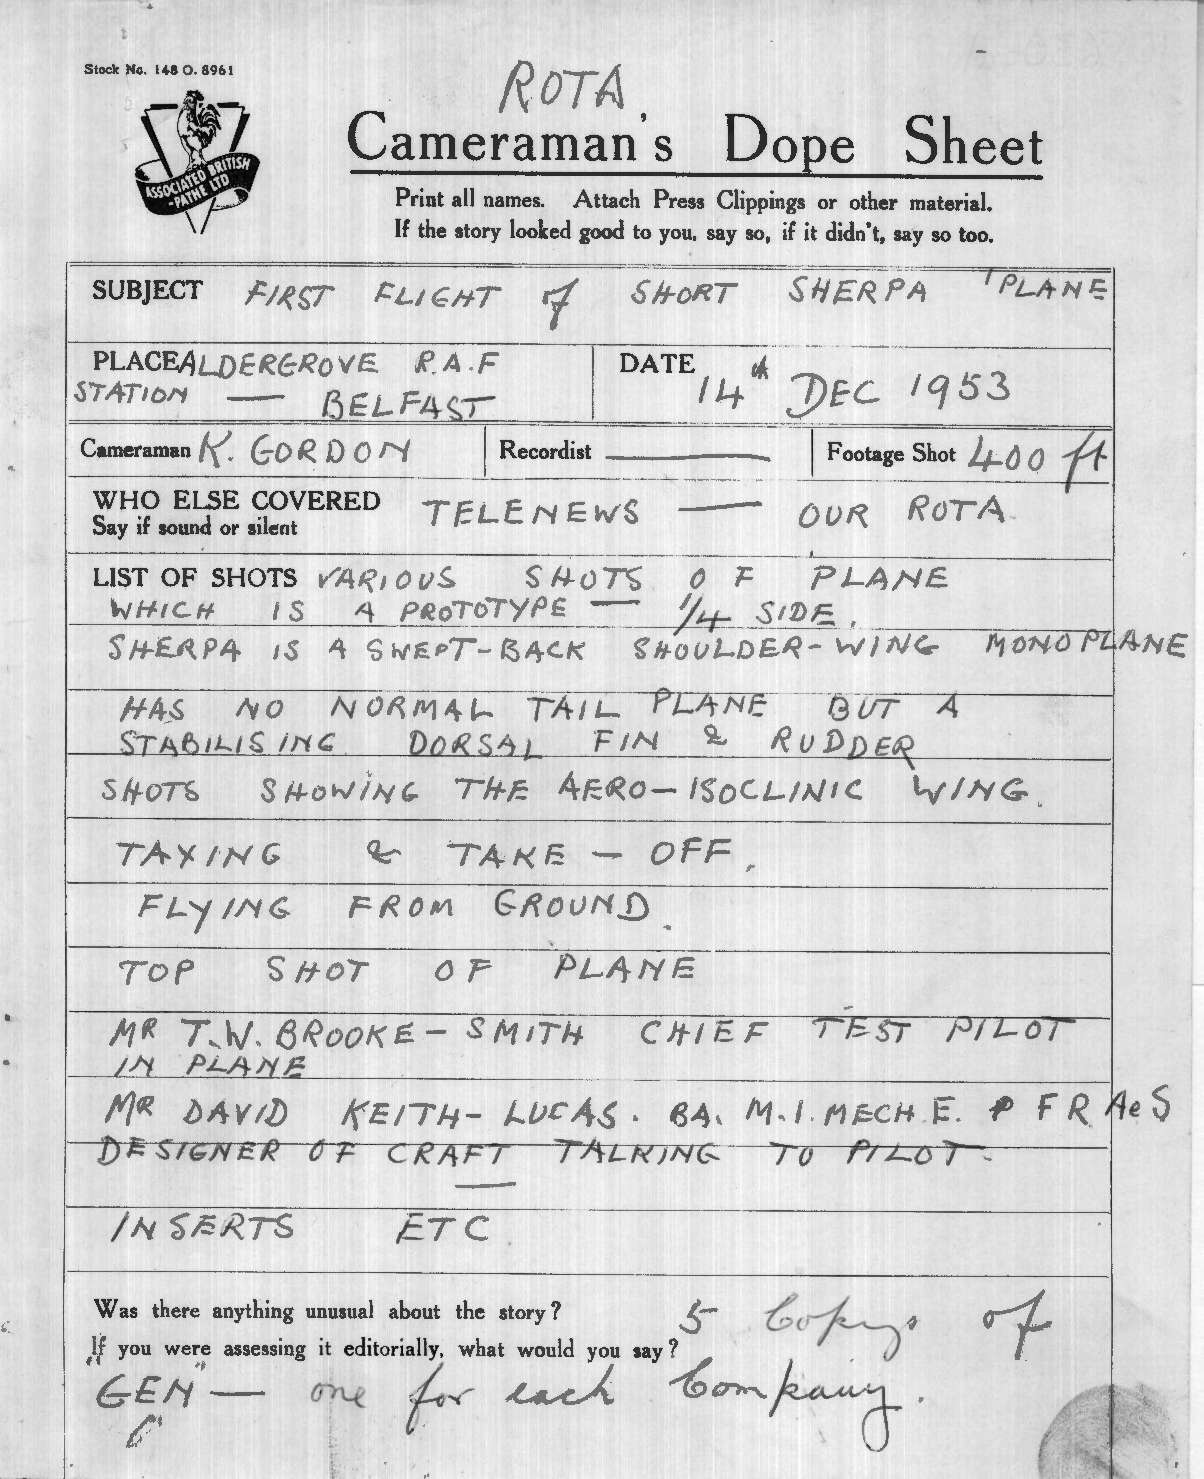 Stock No. 148 O. 8961
ROTA
ASSOCIATED BRITISH
-PATHE LTD
Cameraman's Dope Sheet
Print all names. Attach Press Clippings or other material.
If the story looked good to you, say so, if it didn't, say so too.
SUBJECT FIRST FLIGHT of SHORT SHERPA 'PLANE
PLACE ALDERGROVE R.A.F
STATION — BELFAST
DATE 14th DEC 1953
Cameraman K. GORDON Recordist — Footage Shot 400 ft
WHO ELSE COVERED TELENEWS — OUR ROTA
Say if sound or silent
LIST OF SHOTS VARIOUS SHOTS OF PLANE
WHICH IS A PROTOTYPE — 1/4 SIDE.
SHERPA IS A SWEPT-BACK SHOULDER-WING MONOPLANE
HAS NO NORMAL TAIL PLANE BUT A
STABILISING DORSAL FIN & RUDDER
SHOTS SHOWING THE AERO-ISOCLINIC WING.
TAXING & TAKE-OFF.
FLYING FROM GROUND.
TOP SHOT OF PLANE
MR T.W. BROOKE-SMITH CHIEF TEST PILOT
IN PLANE
MR DAVID KEITH-LUCAS. BA. M.I. MECH.E. F R AeS
DESIGNER OF CRAFT TALKING TO PILOT.
INSERTS ETC
Was there anything unusual about the story?
If you were assessing it editorially, what would you say?
5 Copys of
"GEN" — one for each Company.